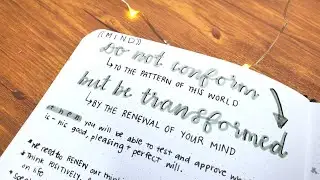 ((MIND))
Do not conform
↳TO THE PATTERN OF THIS WORLD
but be transformed
↳BY THE RENEWAL OF YOUR MIND
then you will be able to test and approve what
is - his good, pleasing + perfect will.
*We need to RENEW our
*Think POSITIVELY,
on life